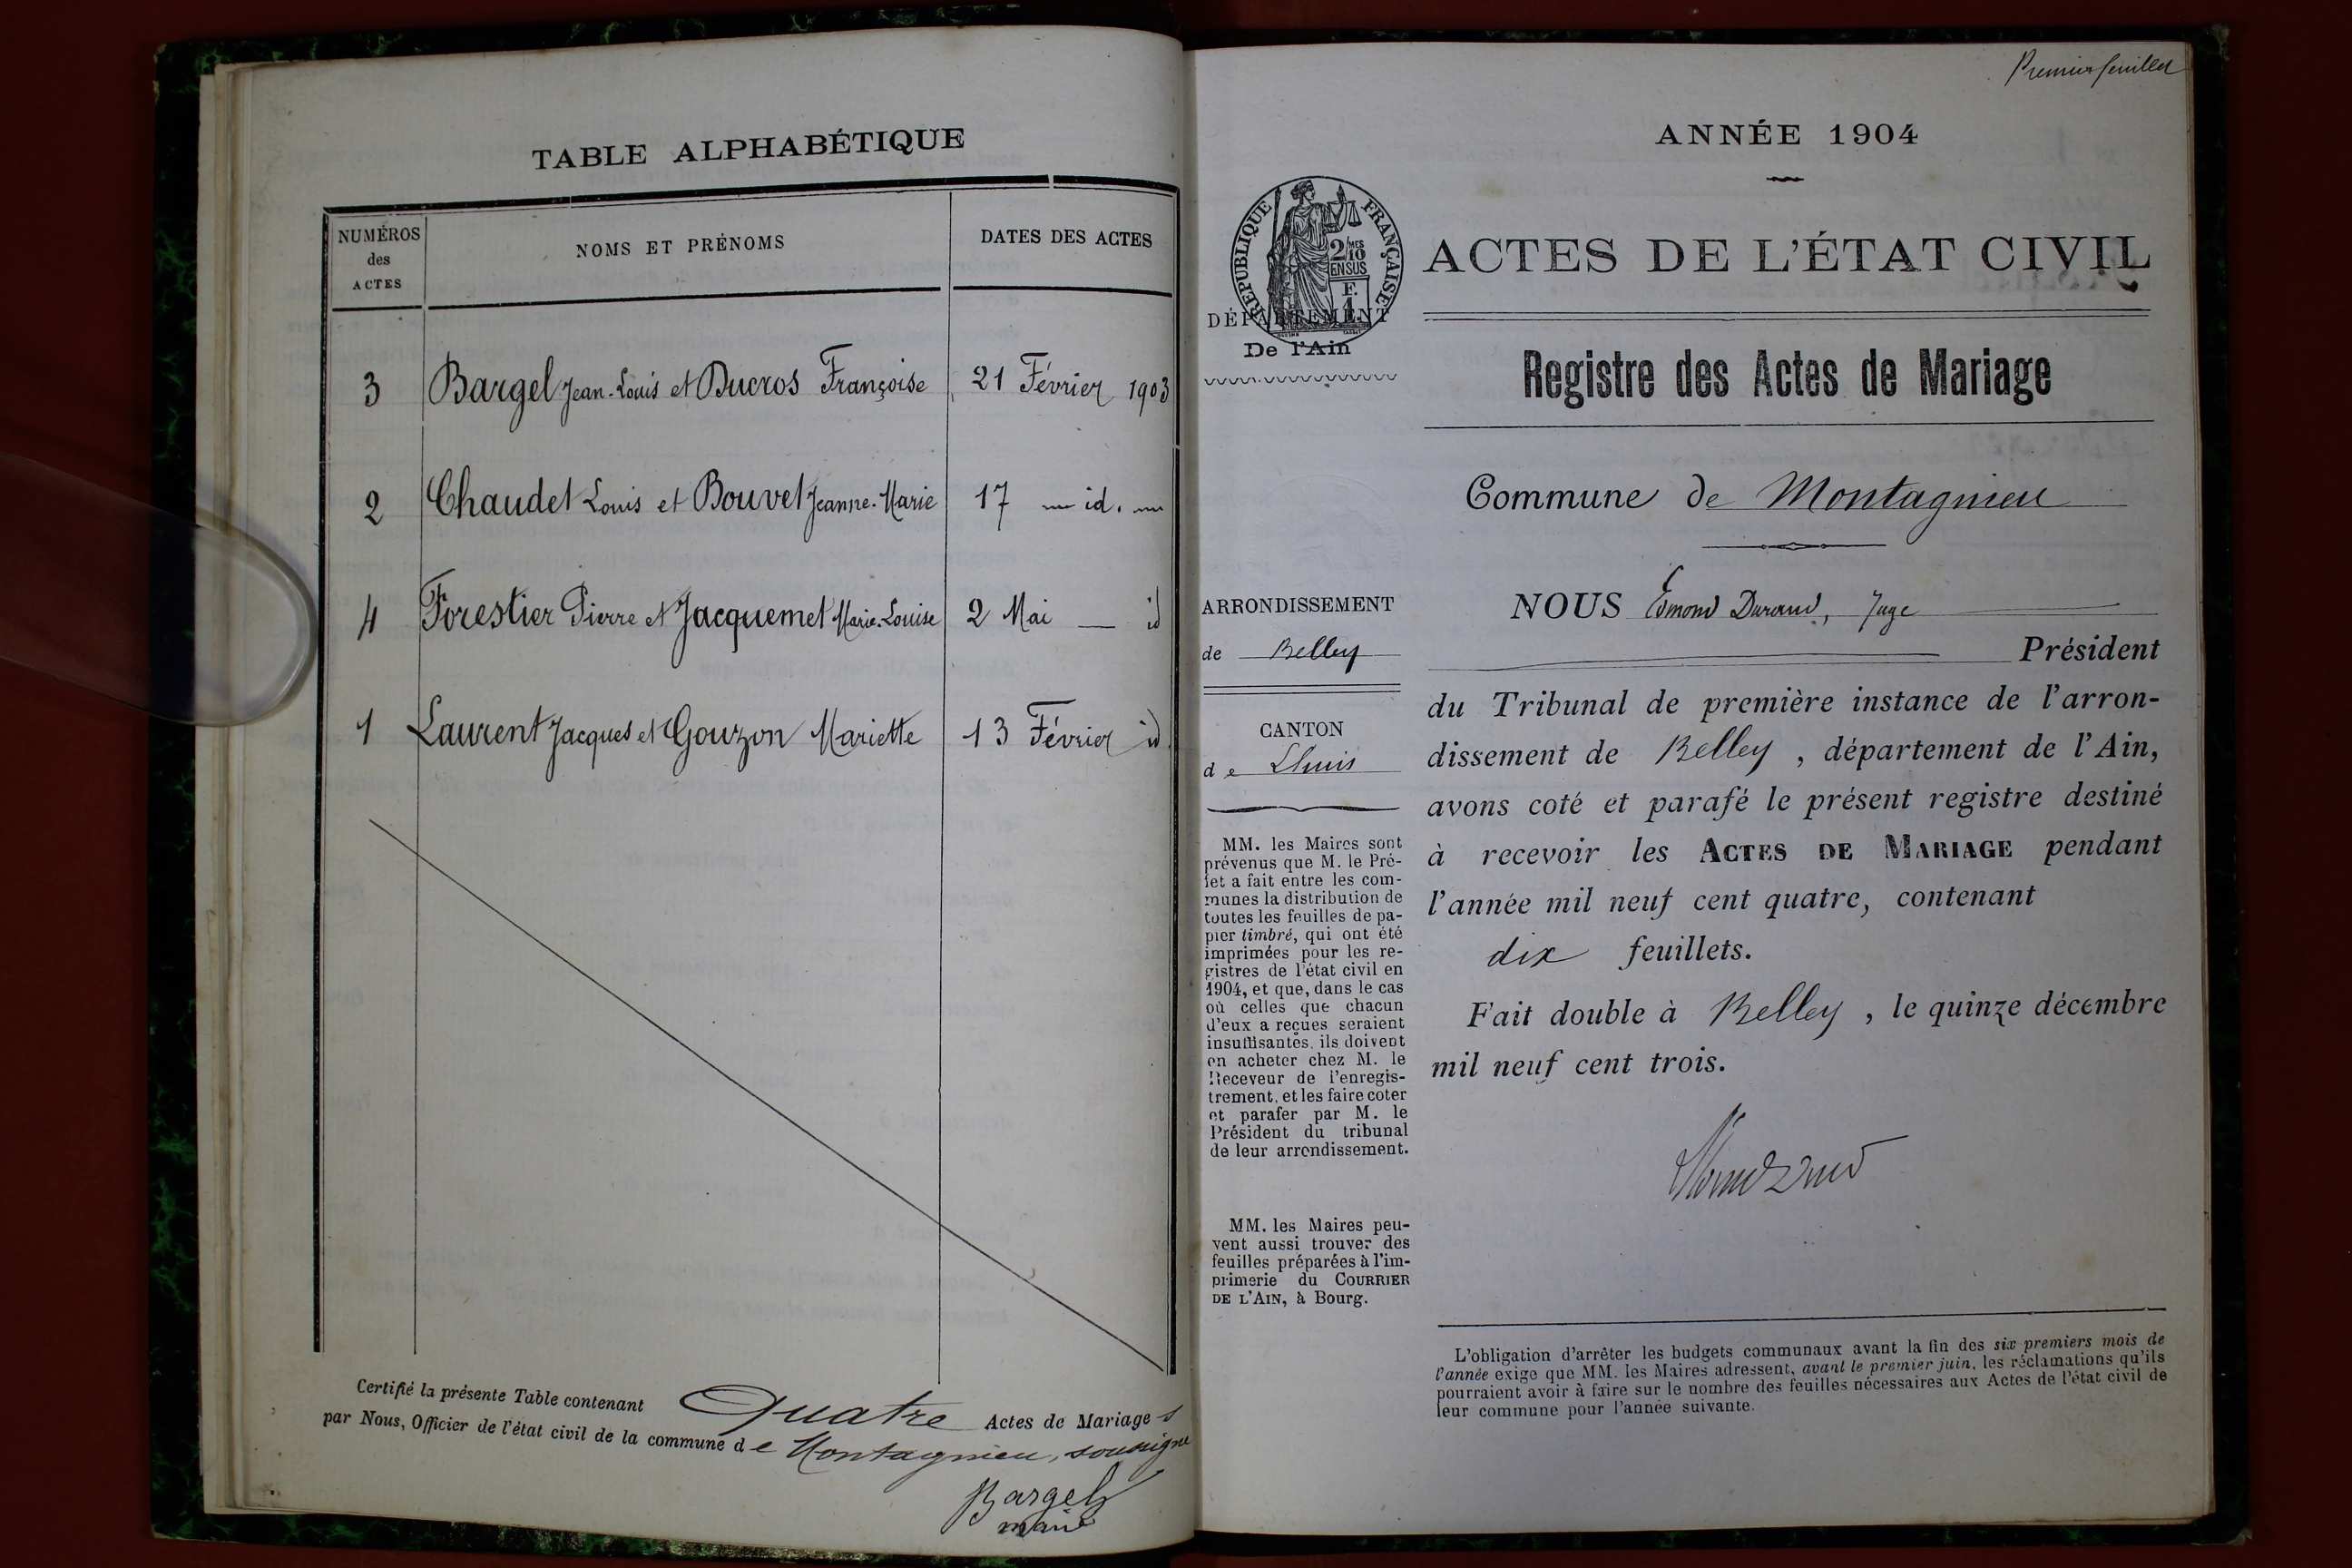 TABLE ALPHABÉTIQUE
NUMÉROS
des
ACTES
NOMS ET PRÉNOMS
DATES DES ACTES
3 Bargel Jean-Louis et Ducros Françoise 21 Février 1903
2 Chaudet Louis et Bouvet Jeanne-Marie 17 — id. —
4 Forestier Pierre et Jacquemet Marie-Louise 2 Mai — id
1 Laurent Jacques et Gouzon Mariette 13 Février id
Certifié la présente Table contenant Quatre Actes de Mariages
par Nous, Officier de l'état civil de la commune de Montagnieu, soussigné
Bargel
maire
Premier feuillet
ANNÉE 1904
RÉPUBLIQUE FRANÇAISE
2/10 MES
EN SUS
F.
1
DÉPARTEMENT
De l'Ain
ACTES DE L'ÉTAT CIVIL
Registre des Actes de Mariage
Commune de Montagnieu
ARRONDISSEMENT
de Belley
CANTON
de Lhuis
MM. les Maires sont
prévenus que M. le Pré-
fet a fait entre les com-
munes la distribution de
toutes les feuilles de pa-
pier timbré, qui ont été
imprimées pour les re-
gistres de l'état civil en
1904, et que, dans le cas
où celles que chacun
d'eux a reçues seraient
insuffisantes, ils doivent
en acheter chez M. le
Receveur de l'enregis-
trement, et les faire coter
et parafer par M. le
Président du tribunal
de leur arrondissement.
MM. les Maires peu-
vent aussi trouver des
feuilles préparées à l'im-
primerie du COURRIER
DE L'AIN, à Bourg.
NOUS Edmond Durand, Juge
Président
du Tribunal de première instance de l'arron-
dissement de Belley, département de l'Ain,
avons coté et parafé le présent registre destiné
à recevoir les ACTES DE MARIAGE pendant
l'année mil neuf cent quatre, contenant
dix feuillets.
Fait double à Belley, le quinze décembre
mil neuf cent trois.
L'obligation d'arrêter les budgets communaux avant la fin des six premiers mois de
l'année exige que MM. les Maires adressent, avant le premier juin, les réclamations qu'ils
pourraient avoir à faire sur le nombre des feuilles nécessaires aux Actes de l'état civil de
leur commune pour l'année suivante.